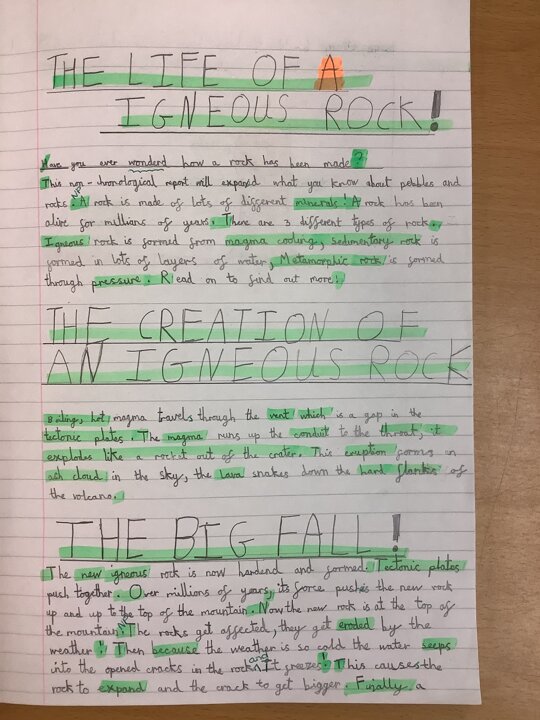 THE LIFE OF A
IGNEOUS ROCK!
Have you ever wonderd how a rock has been made?
This non-chronological report will expand what you know about pebbles and
rocks. A rock is made of lots of different minerals! A rock has been
alive for millions of years. There are 3 different types of rock.
Igneous rock is formed from magma cooling, sedimentary rock is
formed in lots of layers of water, Metamorphic rock is formed
through pressure. Read on to find out more!
THE CREATION OF
AN IGNEOUS ROCK
Boiling, hot magma travels through the vent which is a gap in the
tectonic plates. The magma runs up the conduit to the throat, it
explodes like a rocket out of the crater. This eruption forms an
ash cloud in the sky, the lava snakes down the hard flanks of
the volcano.
THE BIG FALL!
The new igneous rock is now hardend and formed. Tectonic plates
push together. Over millions of years, its force pushes the new rock
up and up to the top of the mountain. Now the new rock is at the top of
the mountain. The rocks get affected, they get eroded by the
weather! Then because the weather is so cold the water seeps
into the opened cracks in the rock and it freezes! This causes the
rock to expand and the crack to get bigger. Finally, a